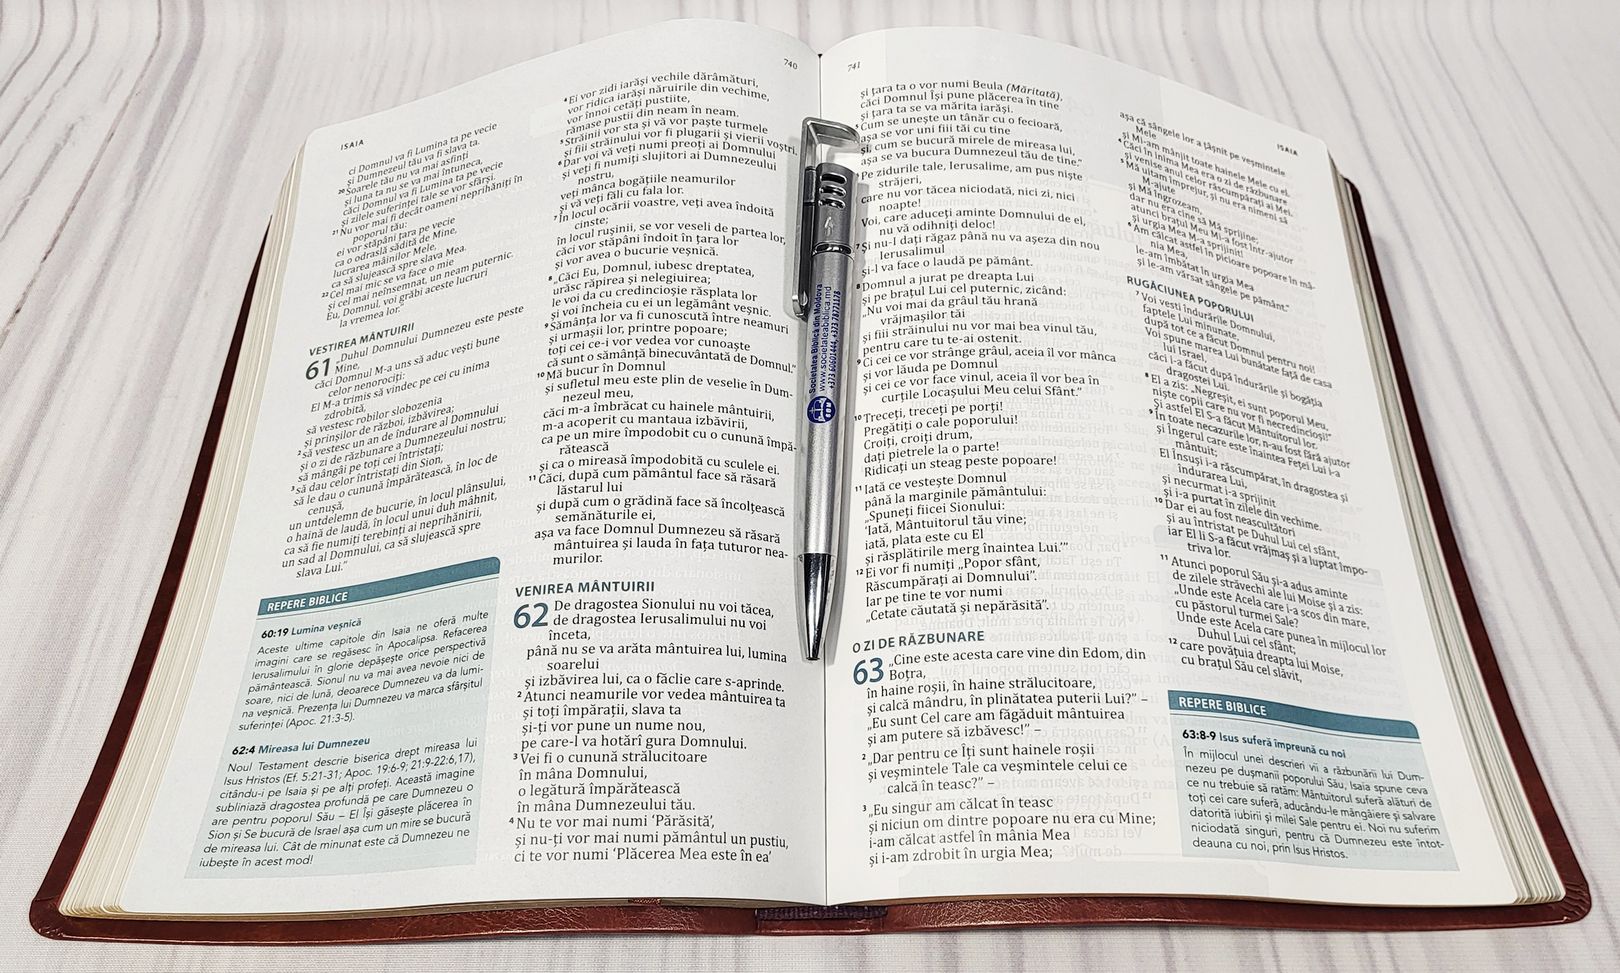 740
ISAIA
ci Domnul va fi Lumina ta pe vecie
și Dumnezeul tău va fi slava ta.
20 Soarele tău nu va mai asfinți
și luna ta nu se va mai întuneca,
căci Domnul va fi Lumina ta pe vecie
și zilele suferinței tale se vor sfârși.
21 Nu vor mai fi decât oameni neprihăniți în
poporul tău:
ei vor stăpâni țara pe vecie
ca o odraslă sădită de Mine,
lucrarea mâinilor Mele,
ca să slujească spre slava Mea.
22 Cel mai mic se va face o mie
și cel mai neînsemnat, un neam puternic.
Eu, Domnul, voi grăbi aceste lucruri
la vremea lor."
VESTIREA MÂNTUIRII
61 „Duhul Domnului Dumnezeu este peste
Mine,
căci Domnul M-a uns să aduc vești bune
celor nenorociți:
El M-a trimis să vindec pe cei cu inima
zdrobită,
să vestesc robilor slobozenia
și prinșilor de război, izbăvirea;
2 să vestesc un an de îndurare al Domnului
și o zi de răzbunare a Dumnezeului nostru;
să mângâi pe toți cei întristați;
3 să dau celor întristați din Sion,
să le dau o cunună împărătească, în loc de
cenușă,
un untdelemn de bucurie, în locul plânsului,
o haină de laudă, în locul unui duh mâhnit,
ca să fie numiți terebinți ai neprihănirii,
un sad al Domnului, ca să slujească spre
slava Lui."
REPERE BIBLICE
60:19 Lumina veșnică
Aceste ultime capitole din Isaia ne oferă multe
imagini care se regăsesc în Apocalipsa. Refacerea
Ierusalimului în glorie depășește orice perspectivă
pământească. Sionul nu va mai avea nevoie nici de
soare, nici de lună, deoarece Dumnezeu va da lumi-
na veșnică. Prezența lui Dumnezeu va marca sfârșitul
suferinței (Apoc. 21:3-5).
62:4 Mireasa lui Dumnezeu
Noul Testament descrie biserica drept mireasa lui
Isus Hristos (Ef. 5:21-31; Apoc. 19:6-9; 21:9-22:6,17),
citându-i pe Isaia și pe alți profeți. Această imagine
subliniază dragostea profundă pe care Dumnezeu o
are pentru poporul Său – El Își găsește plăcerea în
Sion și Se bucură de Israel așa cum un mire se bucură
de mireasa lui. Cât de minunat este că Dumnezeu ne
iubește în acest mod!
4 Ei vor zidi iarăși vechile dărâmături,
vor ridica iarăși năruirile din vechime,
vor înnoi cetăți pustiite,
rămase pustii din neam în neam.
5 Străinii vor sta și vă vor paște turmele
și fiii străinului vor fi plugarii și vierii voștri.
6 Dar voi vă veți numi preoți ai Domnului
și veți fi numiți slujitori ai Dumnezeului
nostru,
veți mânca bogățiile neamurilor
și vă veți făli cu fala lor.
7 În locul ocării voastre, veți avea îndoită
cinste;
în locul rușinii, se vor veseli de partea lor,
căci vor stăpâni îndoit în țara lor
și vor avea o bucurie veșnică.
8 „Căci Eu, Domnul, iubesc dreptatea,
urăsc răpirea și nelegiuirea;
le voi da cu credincioșie răsplata lor
și voi încheia cu ei un legământ veșnic.
9 Sămânța lor va fi cunoscută între neamuri
și urmașii lor, printre popoare;
toți cei ce-i vor vedea vor cunoaște
că sunt o sămânță binecuvântată de Domnul."
10 Mă bucur în Domnul
și sufletul meu este plin de veselie în Dum-
nezeul meu,
căci m-a îmbrăcat cu hainele mântuirii,
m-a acoperit cu mantaua izbăvirii,
ca pe un mire împodobit cu o cunună împă-
rătească
și ca o mireasă împodobită cu sculele ei.
11 Căci, după cum pământul face să răsară
lăstarul lui
și după cum o grădină face să încolțească
semănăturile ei,
așa va face Domnul Dumnezeu să răsară
mântuirea și lauda în fața tuturor nea-
murilor.
VENIREA MÂNTUIRII
62 De dragostea Sionului nu voi tăcea,
de dragostea Ierusalimului nu voi
înceta,
până nu se va arăta mântuirea lui, lumina
soarelui
și izbăvirea lui, ca o făclie care s-aprinde.
2 Atunci neamurile vor vedea mântuirea ta
și toți împărații, slava ta
și-ți vor pune un nume nou,
pe care-l va hotărî gura Domnului.
3 Vei fi o cunună strălucitoare
în mâna Domnului,
o legătură împărătească
în mâna Dumnezeului tău.
4 Nu te vor mai numi 'Părăsită',
și nu-ți vor mai numi pământul un pustiu,
ci te vor numi 'Plăcerea Mea este în ea'
Societatea Biblică din Moldova
www.societateabiblica.md
+373 60601444, +373 78771178
SBM
741
ISAIA
și țara ta o vor numi Beula (Măritată),
căci Domnul Își pune plăcerea în tine
și țara ta se va mărita iarăși.
5 Cum se unește un tânăr cu o fecioară,
așa se vor uni fiii tăi cu tine
și, cum se bucură mirele de mireasa lui,
așa se va bucura Dumnezeul tău de tine."
Pe zidurile tale, Ierusalime, am pus niște
străjeri,
care nu vor tăcea niciodată, nici zi, nici
noapte!
Voi, care aduceți aminte Domnului de el,
nu vă odihniți deloc!
7 Și nu-I dați răgaz până nu va așeza din nou
Ierusalimul
și-l va face o laudă pe pământ.
8 Domnul a jurat pe dreapta Lui
și pe brațul Lui cel puternic, zicând:
„Nu voi mai da grâul tău hrană
vrăjmașilor tăi
și fiii străinului nu vor mai bea vinul tău,
pentru care tu te-ai ostenit.
9 Ci cei ce vor strânge grâul, aceia îl vor mânca
și vor lăuda pe Domnul
și cei ce vor face vinul, aceia îl vor bea în
curțile Locașului Meu celui Sfânt."
10 Treceți, treceți pe porți!
Pregătiți o cale poporului!
Croiți, croiți drum,
dați pietrele la o parte!
Ridicați un steag peste popoare!
11 Iată ce vestește Domnul
până la marginile pământului:
„Spuneți fiicei Sionului:
'Iată, Mântuitorul tău vine;
iată, plata este cu El
și răsplătirile merg înaintea Lui.'"
12 Ei vor fi numiți „Popor sfânt,
Răscumpărați ai Domnului".
Iar pe tine te vor numi
„Cetate căutată și nepărăsită".
O ZI DE RĂZBUNARE
63 „Cine este acesta care vine din Edom, din
Boțra,
în haine roșii, în haine strălucitoare,
și calcă mândru, în plinătatea puterii Lui?" –
„Eu sunt Cel care am făgăduit mântuirea
și am putere să izbăvesc!" –
2 „Dar pentru ce Îți sunt hainele roșii
și veșmintele Tale ca veșmintele celui ce
calcă în teasc?" –
3 „Eu singur am călcat în teasc
și niciun om dintre popoare nu era cu Mine;
i-am călcat astfel în mânia Mea
și i-am zdrobit în urgia Mea;
așa că sângele lor a țâșnit pe veșmintele
Mele
și Mi-am mânjit toate hainele Mele cu el.
4 Căci în inima Mea era o zi de răzbunare
și venise anul celor răscumpărați ai Mei.
5 Mă uitam împrejur, și nu era nimeni să
M-ajute
și Mă îngrozeam,
dar nu era cine să Mă sprijine;
atunci brațul Meu Mi-a fost într-ajutor
și urgia Mea M-a sprijinit!
6 Am călcat astfel în picioare popoare în mâ-
nia Mea,
le-am îmbătat în urgia Mea
și le-am vărsat sângele pe pământ."
RUGĂCIUNEA POPORULUI
7 Voi vesti îndurările Domnului,
faptele Lui minunate,
după tot ce a făcut Domnul pentru noi!
Voi spune marea Lui bunătate față de casa
lui Israel,
căci i-a făcut după îndurările și bogăția
dragostei Lui.
8 El a zis: „Negreșit, ei sunt poporul Meu,
niște copii care nu vor fi necredincioși!"
Și astfel El S-a făcut Mântuitorul lor.
9 În toate necazurile lor, n-au fost fără ajutor
și Îngerul care este înaintea Feței Lui i-a
mântuit;
El Însuși i-a răscumpărat, în dragostea și
îndurarea Lui,
și necurmat i-a sprijinit
și i-a purtat în zilele din vechime.
10 Dar ei au fost neascultători
și au întristat pe Duhul Lui cel sfânt,
iar El li S-a făcut vrăjmaș și a luptat împo-
triva lor.
11 Atunci poporul Său și-a adus aminte
de zilele străvechi ale lui Moise și a zis:
„Unde este Acela care i-a scos din mare,
cu păstorul turmei Sale?
Unde este Acela care punea în mijlocul lor
Duhul Lui cel sfânt;
12 care povățuia dreapta lui Moise,
cu brațul Său cel slăvit,
REPERE BIBLICE
63:8-9 Isus suferă împreună cu noi
În mijlocul unei descrieri vii a răzbunării lui Dum-
nezeu pe dușmanii poporului Său, Isaia spune ceva
ce nu trebuie să ratăm: Mântuitorul suferă alături de
toți cei care suferă, aducându-le mângâiere și salvare
datorită iubirii și milei Sale pentru ei. Noi nu suferim
niciodată singuri, pentru că Dumnezeu este întot-
deauna cu noi, prin Isus Hristos.